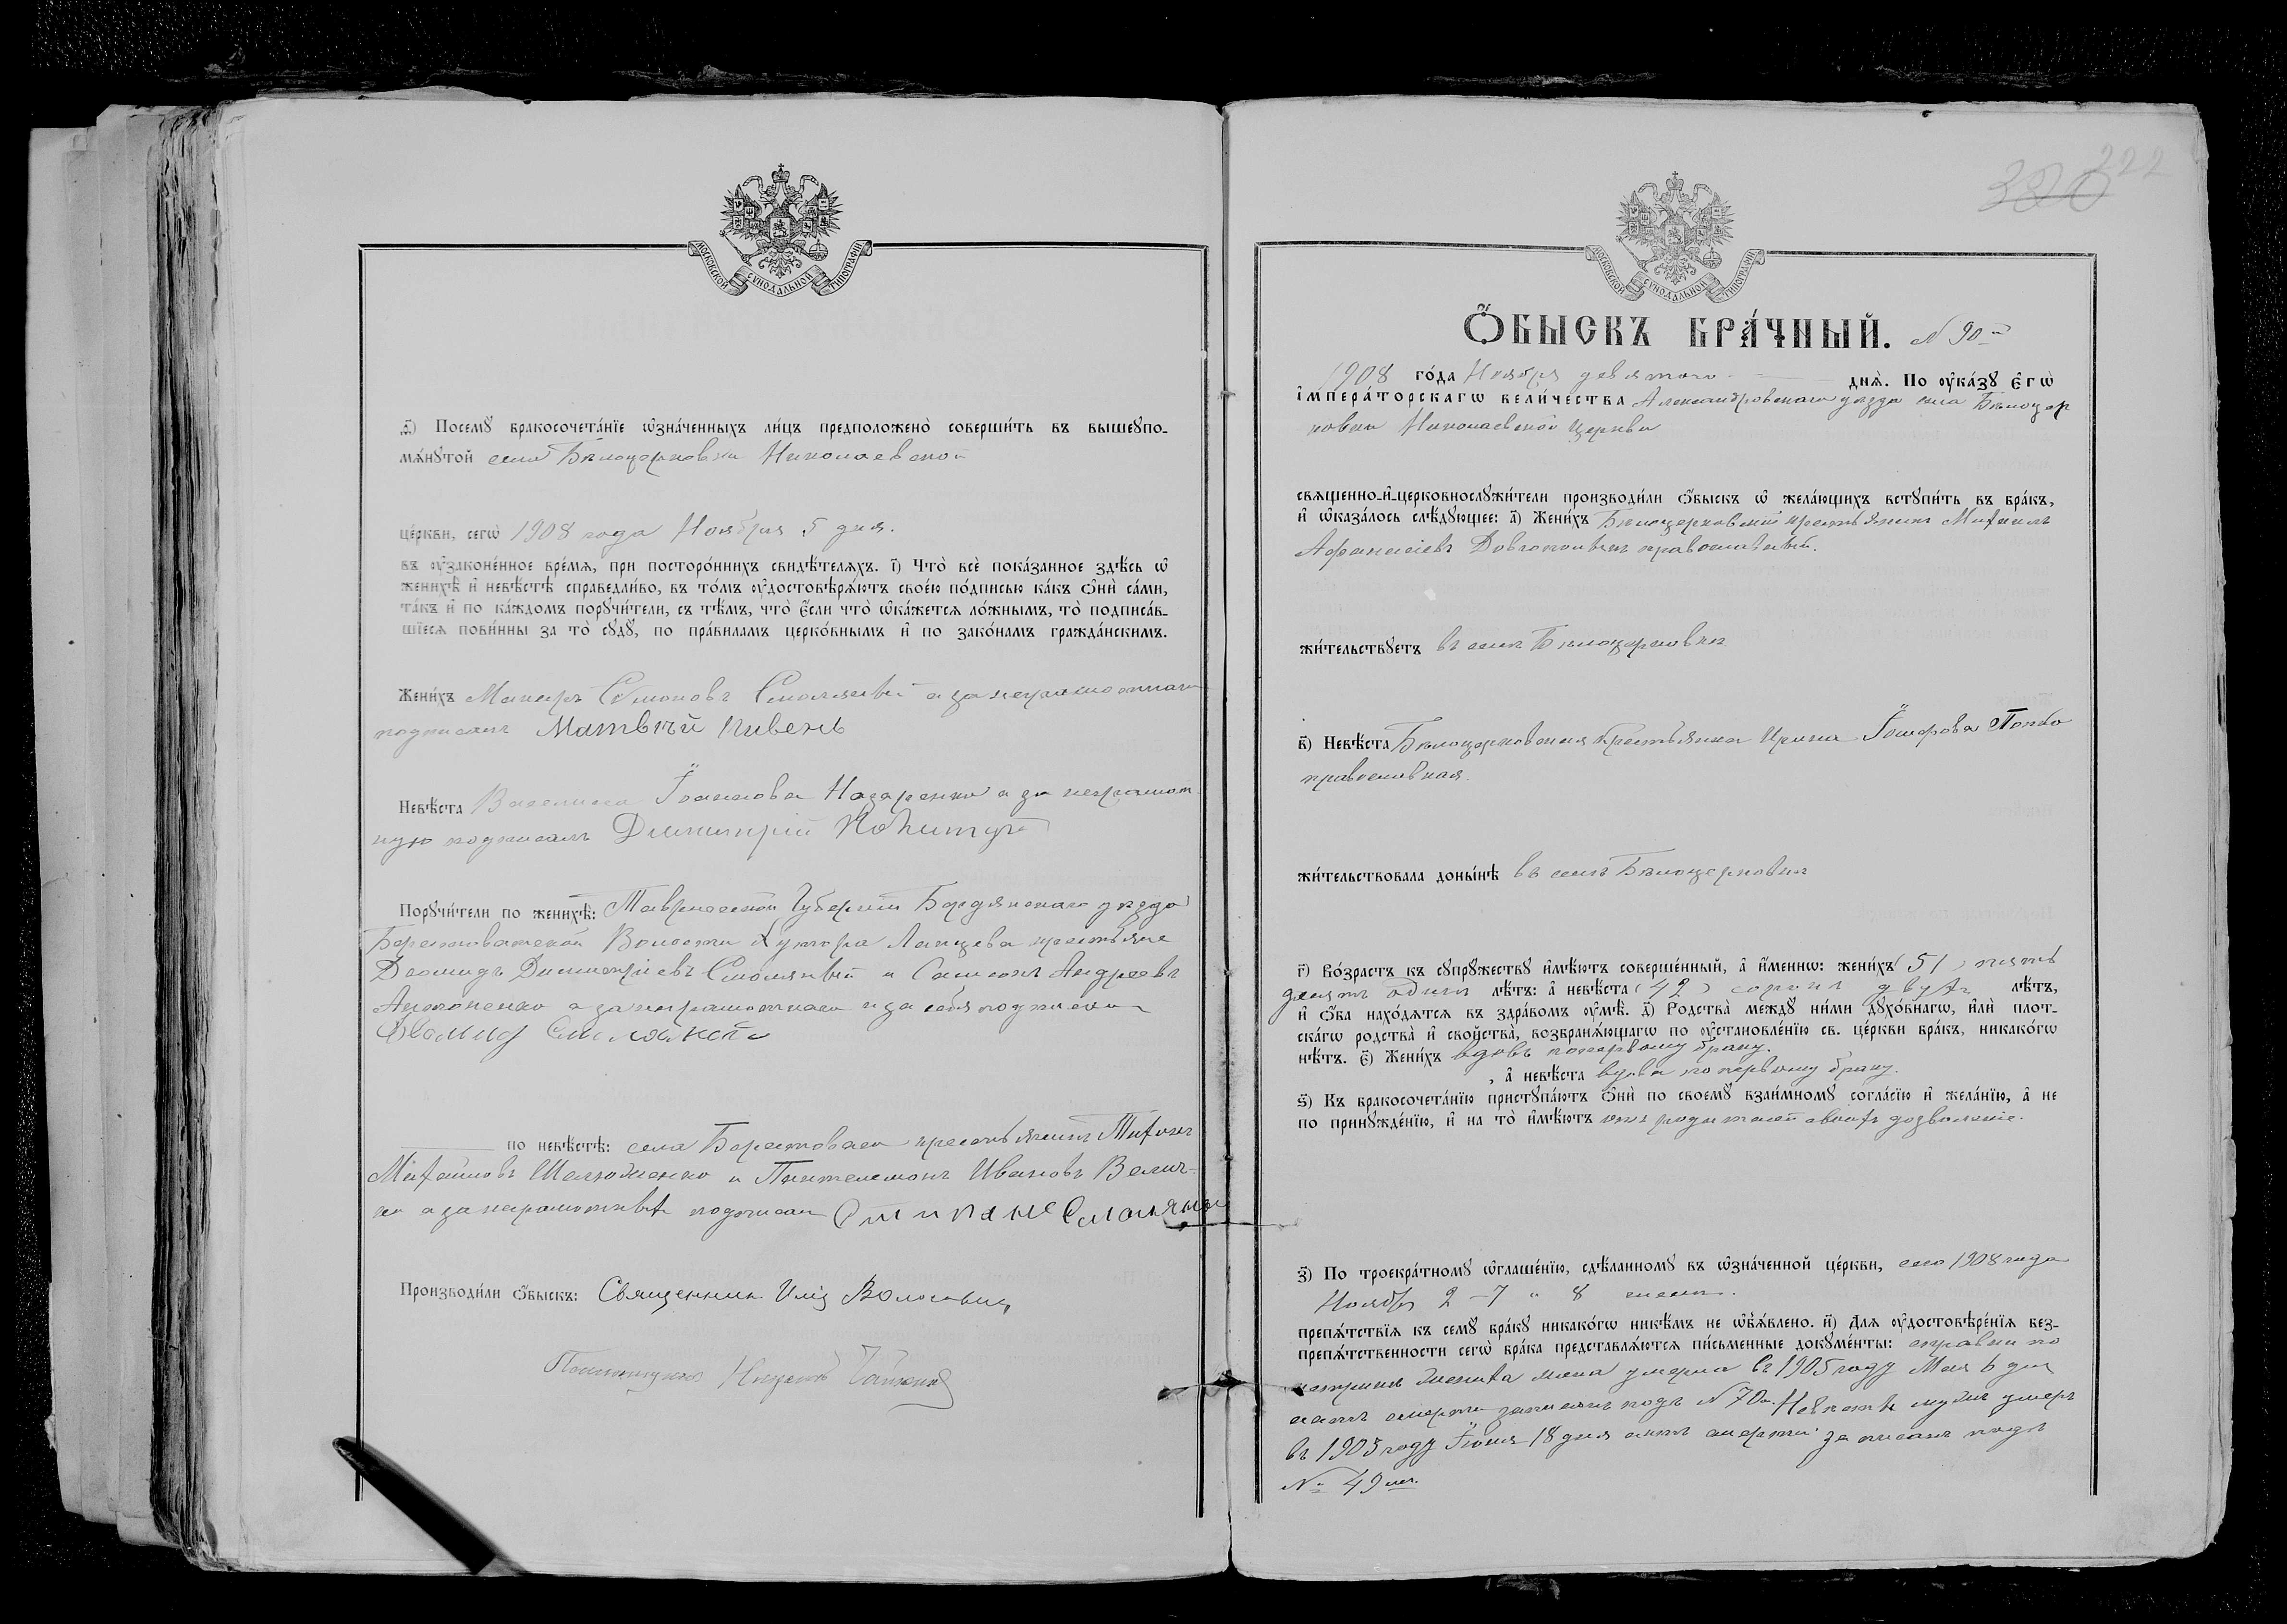 МОСКОВСКОЙ СѴНОДАЛЬНОЙ ТИПОГРАФІИ
ѳ҃) Посемꙋ̀ бракосочета́нїе ѡ҆зна́ченныхъ ли́цъ предположено̀ соверши́ть въ вышеꙋпо-
мѧ́нꙋтой села Бѣлоцерковки Николаевской
це́ркви, сегѡ̀ 1908 года Ноября 5 дня.
въ ᲂу҆зако́ненное вре́мѧ, при посторо́ннихъ свидѣ́телѧхъ. і҃) Что̀ всѐ пока́занное здѣ́сь ѡ҆
женихѣ̀ и҆ невѣ́стѣ справедли́во, въ то́мъ ᲂу҆достовѣрѧ́ютъ свое́ю по́дписью ка́къ ѻ҆нѝ са́ми,
та́къ и҆ по ка́ждомъ порꙋчи́тели, съ тѣ́мъ, что̀ є҆́сли что̀ ѡ҆ка́жетсѧ ло́жнымъ, то̀ подписа́в-
шїесѧ пови́нны за то̀ сꙋдꙋ̀, по пра́виламъ церко́внымъ и҆ по зако́намъ гражда́нскимъ.
Жени́хъ Макаръ Симоновъ Смолянъй а за неграмотнаго
подписалъ Матвѣй Пивень
Невѣ́ста Василиса Іоаннова Назаренко а за неграмот
ную подписалъ Димитрій
Порꙋчи́тели по женихѣ̀: Таврической Губерніи Бердянскаго уѣзда
Берестоватской Волости Хутора Ланцева крестьяне
Деомидъ Димитріевъ Смолянъй и Симеонъ Андреевъ
Антоненко а за неграмотнаго и за себя подписалъ
по невѣ́стѣ: села Берестоваго крестьянинъ Тихонъ
Михайловъ и Пантелемонъ Ивановъ Велич-
ко а за неграмотныхъ подписалъ
Производи́ли ѻ҆́быскъ: Священникъ Илія
МОСКОВСКОЙ СѴНОДАЛЬНОЙ ТИПОГРАФІИ
322
Ѻ҆́БЫСКЪ БРА́ЧНЫЙ. N 90-й
1908 го́да Ноября девятого днѧ̀. По ᲂу҆ка́зꙋ є҆гѡ̀
і҆мпера́торскагѡ вели́чества Александровскаго уѣзда села Бѣлоцер
ковки Николаевской Церкви
свѧщенно-и҆-церковнослꙋжи́тели производи́ли ѻ҆́быскъ ѡ҆ жела́ющихъ встꙋпи́ть въ бра́къ,
и҆ ѡ҆каза́лось слѣ́дꙋющее: а҃) Жени́хъ Бѣлоцерковскій крестьянинъ Михаилъ
Афанасіевъ православный.
жи́тельствꙋетъ въ селѣ Бѣлоцерковкѣ
в҃) Невѣ́ста Бѣлоцерковская крестьянка Ирина
православная.
жи́тельствовала доны́нѣ въ селѣ Бѣлоцерковкѣ
г҃) Во́зрастъ къ сꙋпрꙋ́жествꙋ и҆мѣ́ютъ соверше́нный, а҆ и҆́меннѡ: жени́хъ (51) пять
десятъ одинъ лѣ́тъ: а҆ невѣ́ста (42) сорокъ двухъ лѣ́тъ,
и҆ ѻ҆́ба нахо́дѧтсѧ въ здра́вомъ ᲂу҆мѣ̀. д҃) Родства̀ междꙋ̀ ни́ми дꙋхо́внагѡ, и҆лѝ плот-
ска́гѡ родства̀ и҆ сво́йства, возбранѧ́ющагѡ по ᲂу҆становле́нїю св. це́ркви бра́къ, никако́гѡ
нѣ́тъ. є҃) Жени́хъ вдовъ по первому браку.
, а҆ невѣ́ста вдова по первому браку.
ѕ҃) Къ бракосочета́нїю пристꙋпа́ютъ ѻ҆нѝ по своемꙋ̀ взаи́мномꙋ согла́сїю и҆ жела́нїю, а҆ не
по принꙋжде́нїю, и҆ на то̀ и҆мѣ́ютъ отъ родителей своихъ дозволеніе.
з҃) По троекра́тномꙋ ѡ҆глаше́нїю, сдѣ́ланномꙋ въ ѡ҆зна́ченной це́ркви, сего 1908 года
Ноября 2 - 7 и 8 числа.
препѧ́тствїѧ къ семꙋ̀ бра́кꙋ никако́гѡ никѣ́мъ не ѡ҆б̾ѧ́влено. и҃) Длѧ ᲂу҆достовѣре́нїѧ без-
препѧ́тственности сегѡ̀ бра́ка представлѧ́ютсѧ пи́сьменные докꙋме́нты: справки по
метрикѣ жениха жена умерла въ 1905 году Мая 6 дня
актъ смерти записанъ подъ N 70м. Невѣсты мужъ умеръ
въ 1905 году Іюня 18 дня актъ смерти записанъ подъ
№ 49 мъ.